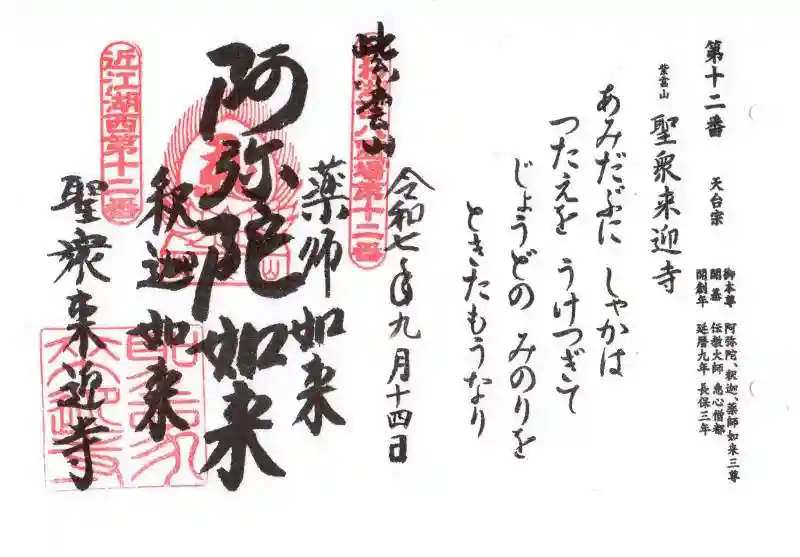 第十二番　天台宗
御本尊　阿弥陀、釈迦、薬師如来三尊
開基　伝教大師　恵心僧都
開創年　延暦九年　長保三年
紫雲山
聖衆来迎寺
あみだぶに　しゃかは
つたえを　うけつぎて
じょうどの　みのりを
ときたもうなり
令和七年九月十四日
紫雲山
薬師如来
阿弥陀如来
釈迦如来
聖衆来迎寺
近江湖西第十二番